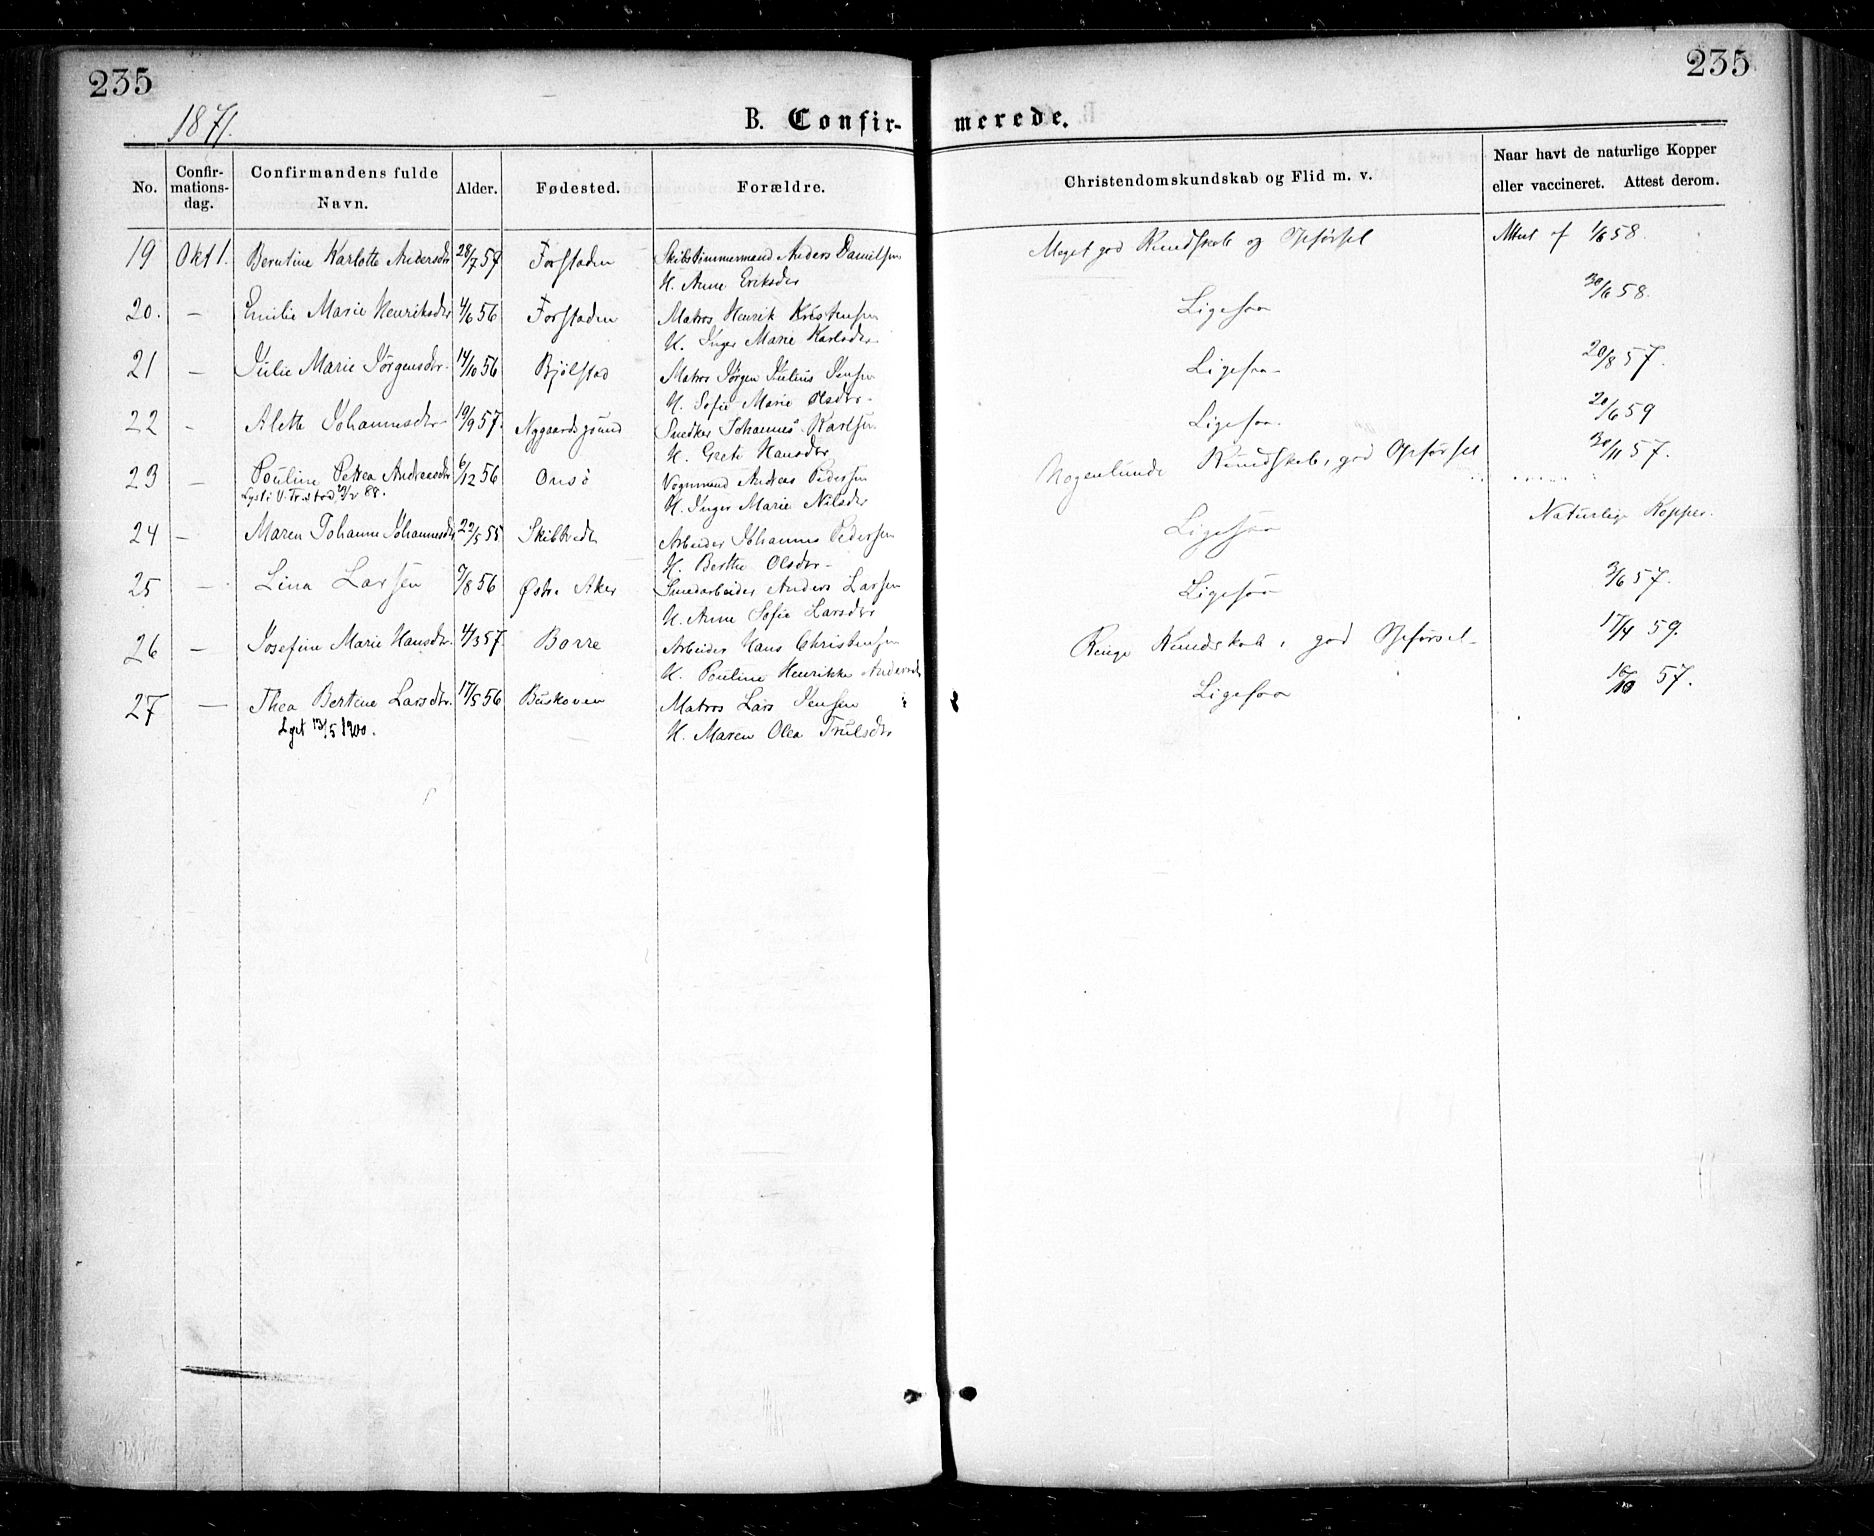 235
235
1871.
B. Confir- merede.
No.
Confir-
mations-
dag.
Confirmandens fulde
Navn.
Alder.
Fødested.
Forældre.
Christendomskundskab og Flid m. v.
Naar havt de naturlige Kopper
eller vaccineret. Attest derom.
19 Okt 1. Berntine Karlotte Andersdtr 28/7 57 Forstaden Skibstimmermand Anders Danielsen Meget god Kundskab og Opførsel Attest af 1/6 58.
H. Anne Eriksdtr
20. — Emilie Marie Henriksdtr 4/6 56 Forstaden Matros Henrik Kristensen Ligesaa 30/6 58.
H. Inger Marie Karlsdtr
21 — Julie Marie Jørgensdtr 14/10 56 Bjølstad Matros Jørgen Julius Jensen Ligesaa 20/8 57.
H. Sofie Marie Olsdtr
22 — Alette Johannesdtr 19/9 57. Nygaardsgrund Snedker Johannes Karlsen Ligesaa. 20/6 59
H. Grete Hansdtr
23 — Pouline Petrea Andreasdtr 6/12 56 Onsø Vognmand Andreas Pedersen Nogenlunde Kundskab, god Opførsel 30/11 57.
Lyst i V. Fr.stad 88.
H. Inger Marie Nilsdtr
24 — Maren Johanne Johannesdtr 22/5 55 Skibtvedt Arbeider Johannes Pedersen Ligesaa Naturlige Kopper.
H. Berthe Olsdtr
25 — Lina Larsen 9/8 56 Østre Aker Smedarbeider Anders Larsen Ligesaa 3/6 57.
H. Anne Sofie Larsdtr
26 — Josefine Marie Hansdtr. 4/3 57 Borre Arbeider Hans Christensen Ringe Kundskab, god Opførsel 17/4 59.
H. Pouline Henrikke Andersdtr
27 — Thea Bertine Larsdtr. 17/5 56 Buskoven Matros Lars Jensen Ligesaa 16/10 57.
Lyst 13/5 1900.
H. Maren Olea Trulsdtr